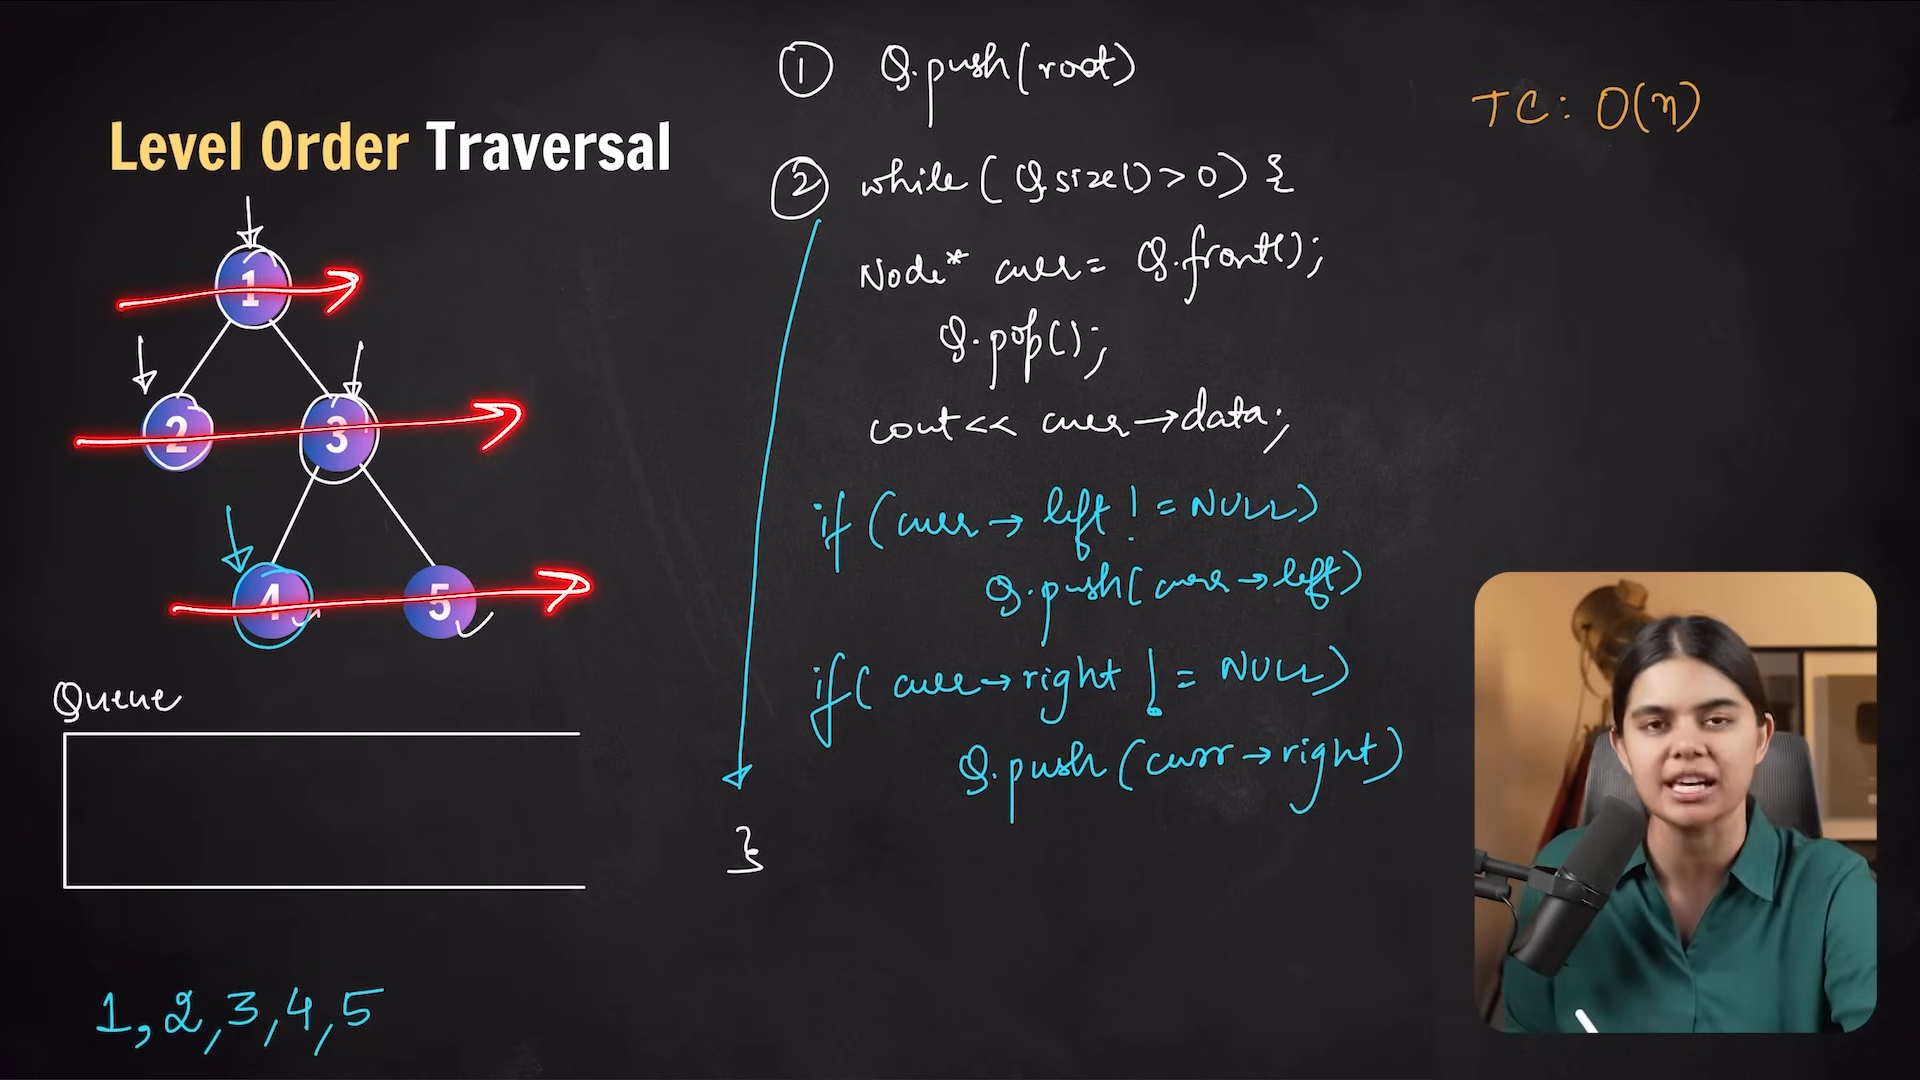 Level Order Traversal
1
2
3
4
5
Queue
1, 2, 3, 4, 5
① Q.push(root)
② while(Q.size()>0) {
Node* curr = Q.front();
Q.pop();
cout<< curr→data;
if (curr→left != NULL)
Q.push(curr→left)
if(curr→right != NULL)
Q.push(curr→right)
}
TC: O(n)